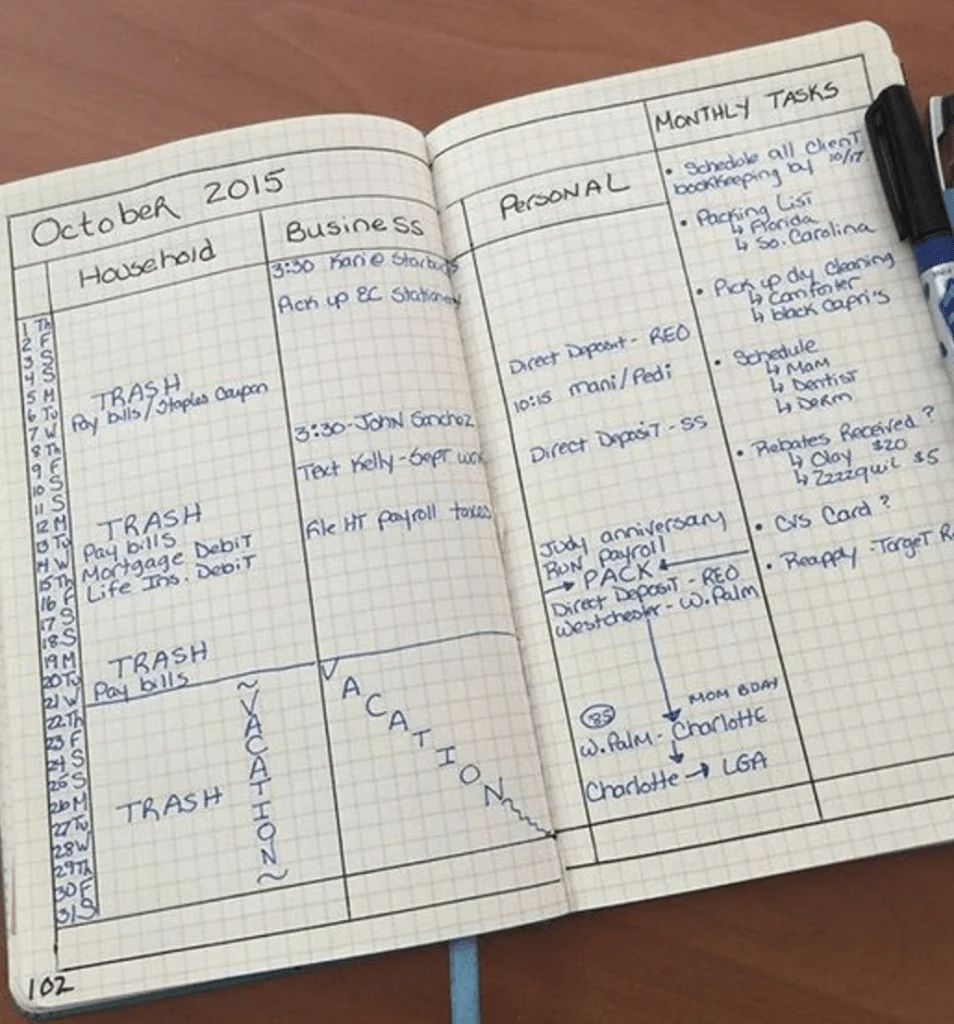 October 2015
Household
Business
1 Th
2 F
3 S
4 S
5 M
6 Tu
7 W
8 Th
9 F
10 S
11 S
12 M
13 Tu
14 W
15 Th
16 F
17 S
18 S
19 M
20 Tu
21 W
22 Th
23 F
24 S
25 S
26 M
27 Tu
28 W
29 Th
30 F
31 S
TRASH
Pay bills/Staples Coupon
TRASH
Pay bills
Mortgage Debit
Life Ins. Debit
TRASH
Pay bills
~VACATION~
TRASH
3:30 Kari @
Pick up EC
3:30-John Sanchez
Text Kelly-Sept
File HT payroll taxes
VACATION
102
Personal
Direct Deposit - REO
10:15 mani/Pedi
Direct Deposit - SS
Judy anniversary
Run payroll
→ PACK ←
Direct Deposit - REO
Westchester - W.Palm
MOM BDAY
85
W.Palm - Charlotte
Charlotte → LGA
MONTHLY TASKS
• Schedule all Client
bookkeeping by 10/17.
• Packing List
↳ Florida
↳ So. Carolina
• Pick up dry cleaning
↳ Comforter
↳ black Capri's
• Schedule
↳ Mam
↳ Dentist
↳ Derm
• Rebates Received?
↳ Olay $20
↳ Zzzzquil $5
• CVS Card?
• Reapply - Target